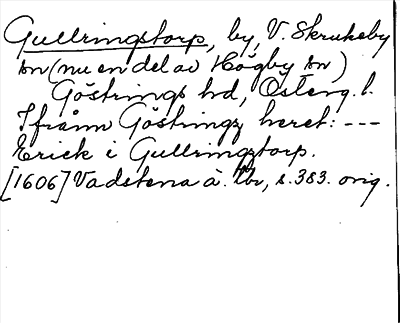 Gullringstorp, by, V. Skrukeby
sn (nu en del av Högby sn)
Göstrings hd, Österg. l.
Ifrånn Göstringz heret: ---
Erick i Gullringztorp.
[1606] Vadstena ä. tbr, s. 383. orig.